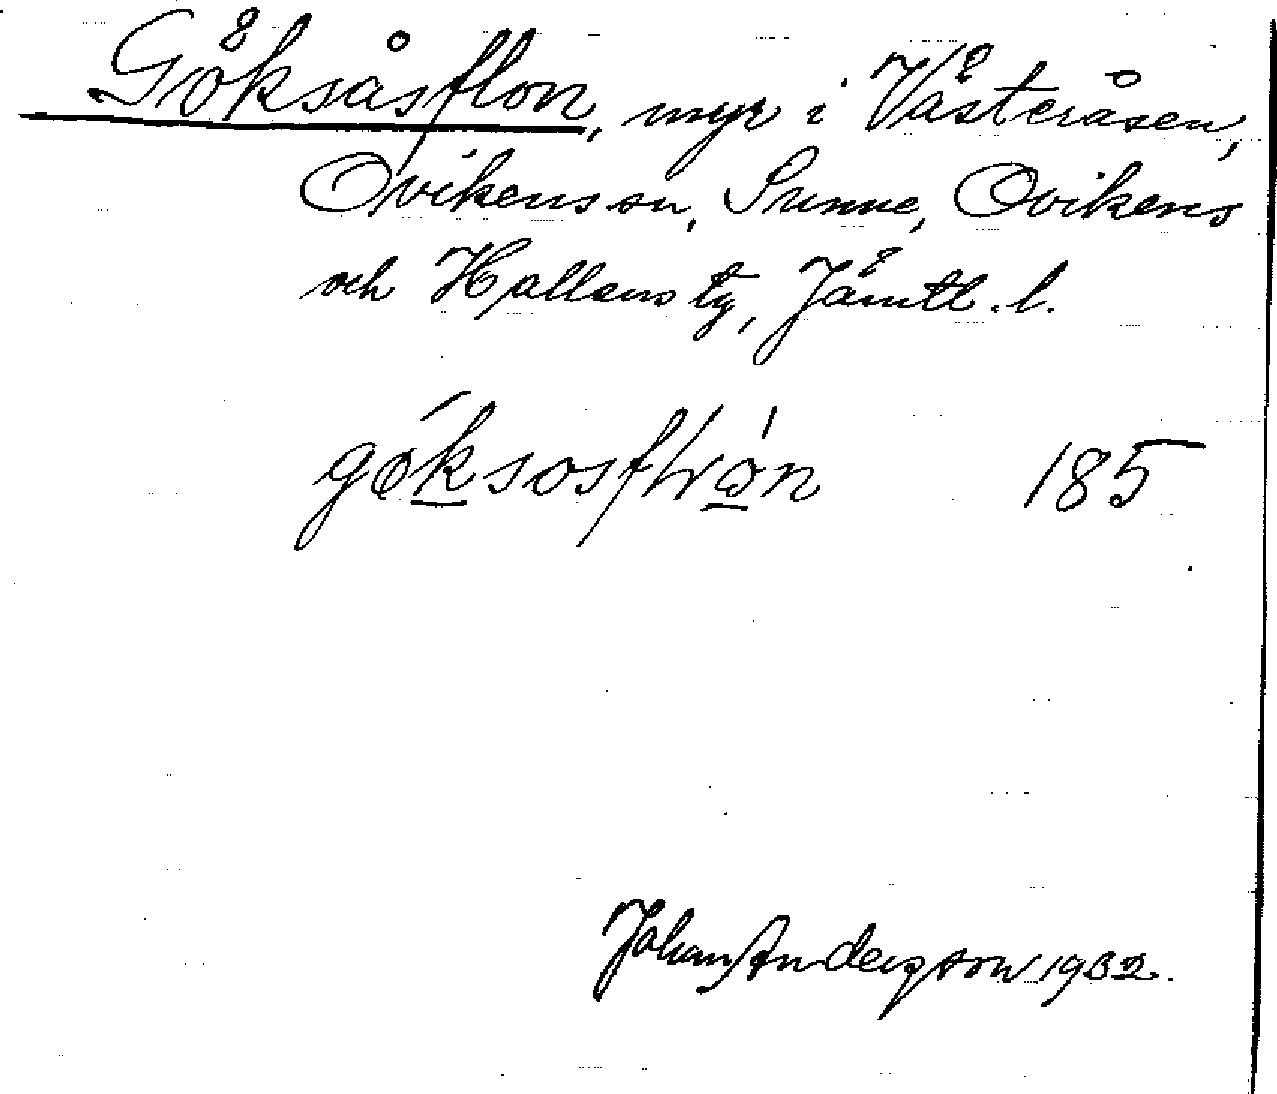 Göksåsflon, myr i Västeråsen,
Ovikens sn, Sunne, Ovikens
och Hallens tg, Jämtl. l.
185
Johan Anderson 1932.